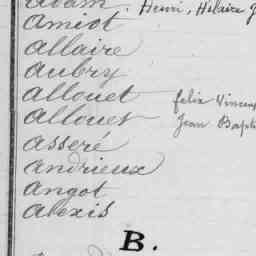 Adam. Henri, Hilaire
Amiot
Allaire
Aubry
Allouet Felix Vincent
Allouet Jean Bapti
Asseré
Andrieux
Angot
Alexis
B.